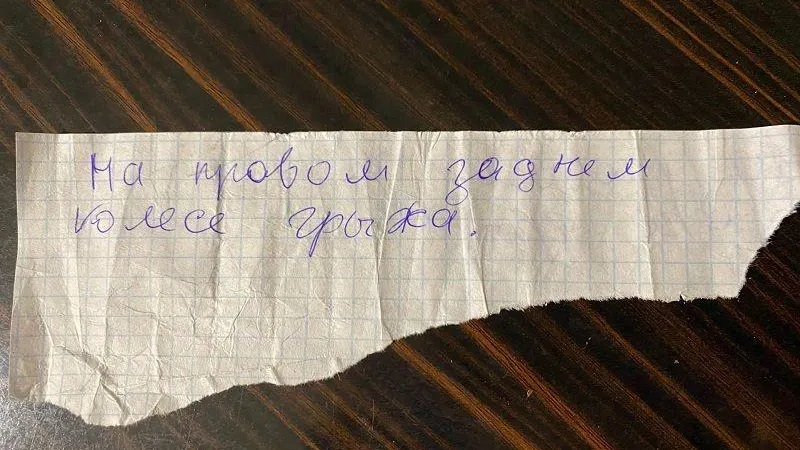 На правом заднем
колесе грыжа.